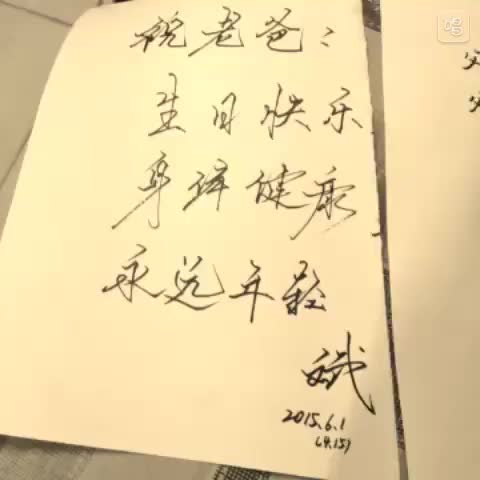 祝老爸：
生日快乐
身体健康
永远年轻
斌
2015.6.1
(4.15)
父
父
唱